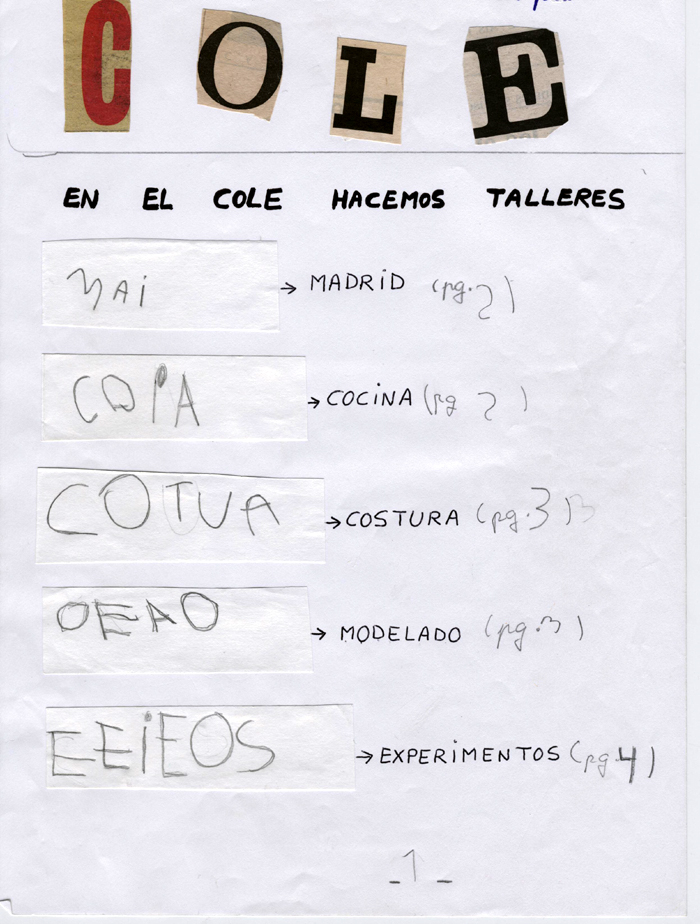 COLE
EN EL COLE HACEMOS TALLERES
MAI → MADRID (pg.2)
COIA → COCINA (pg 2)
COTUA → COSTURA (pg.3)
OEAO → MODELADO (pg.3)
EEIEOS → EXPERIMENTOS (pg 4)
_1_